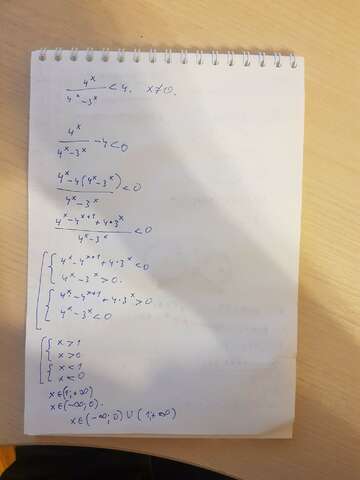 4^x / (4^x - 3^x) < 4, x ≠ 0.
4^x / (4^x - 3^x) - 4 < 0
(4^x - 4(4^x - 3^x)) / (4^x - 3^x) < 0
(4^x - 4^(x+1) + 4·3^x) / (4^x - 3^x) < 0
4^x - 4^(x+1) + 4·3^x < 0
4^x - 3^x > 0.
4^x - 4^(x+1) + 4·3^x > 0
4^x - 3^x < 0
x > 1
x > 0
x < 1
x < 0
x ∈ (1; +∞)
x ∈ (-∞; 0).
x ∈ (-∞; 0) ∪ (1; +∞)